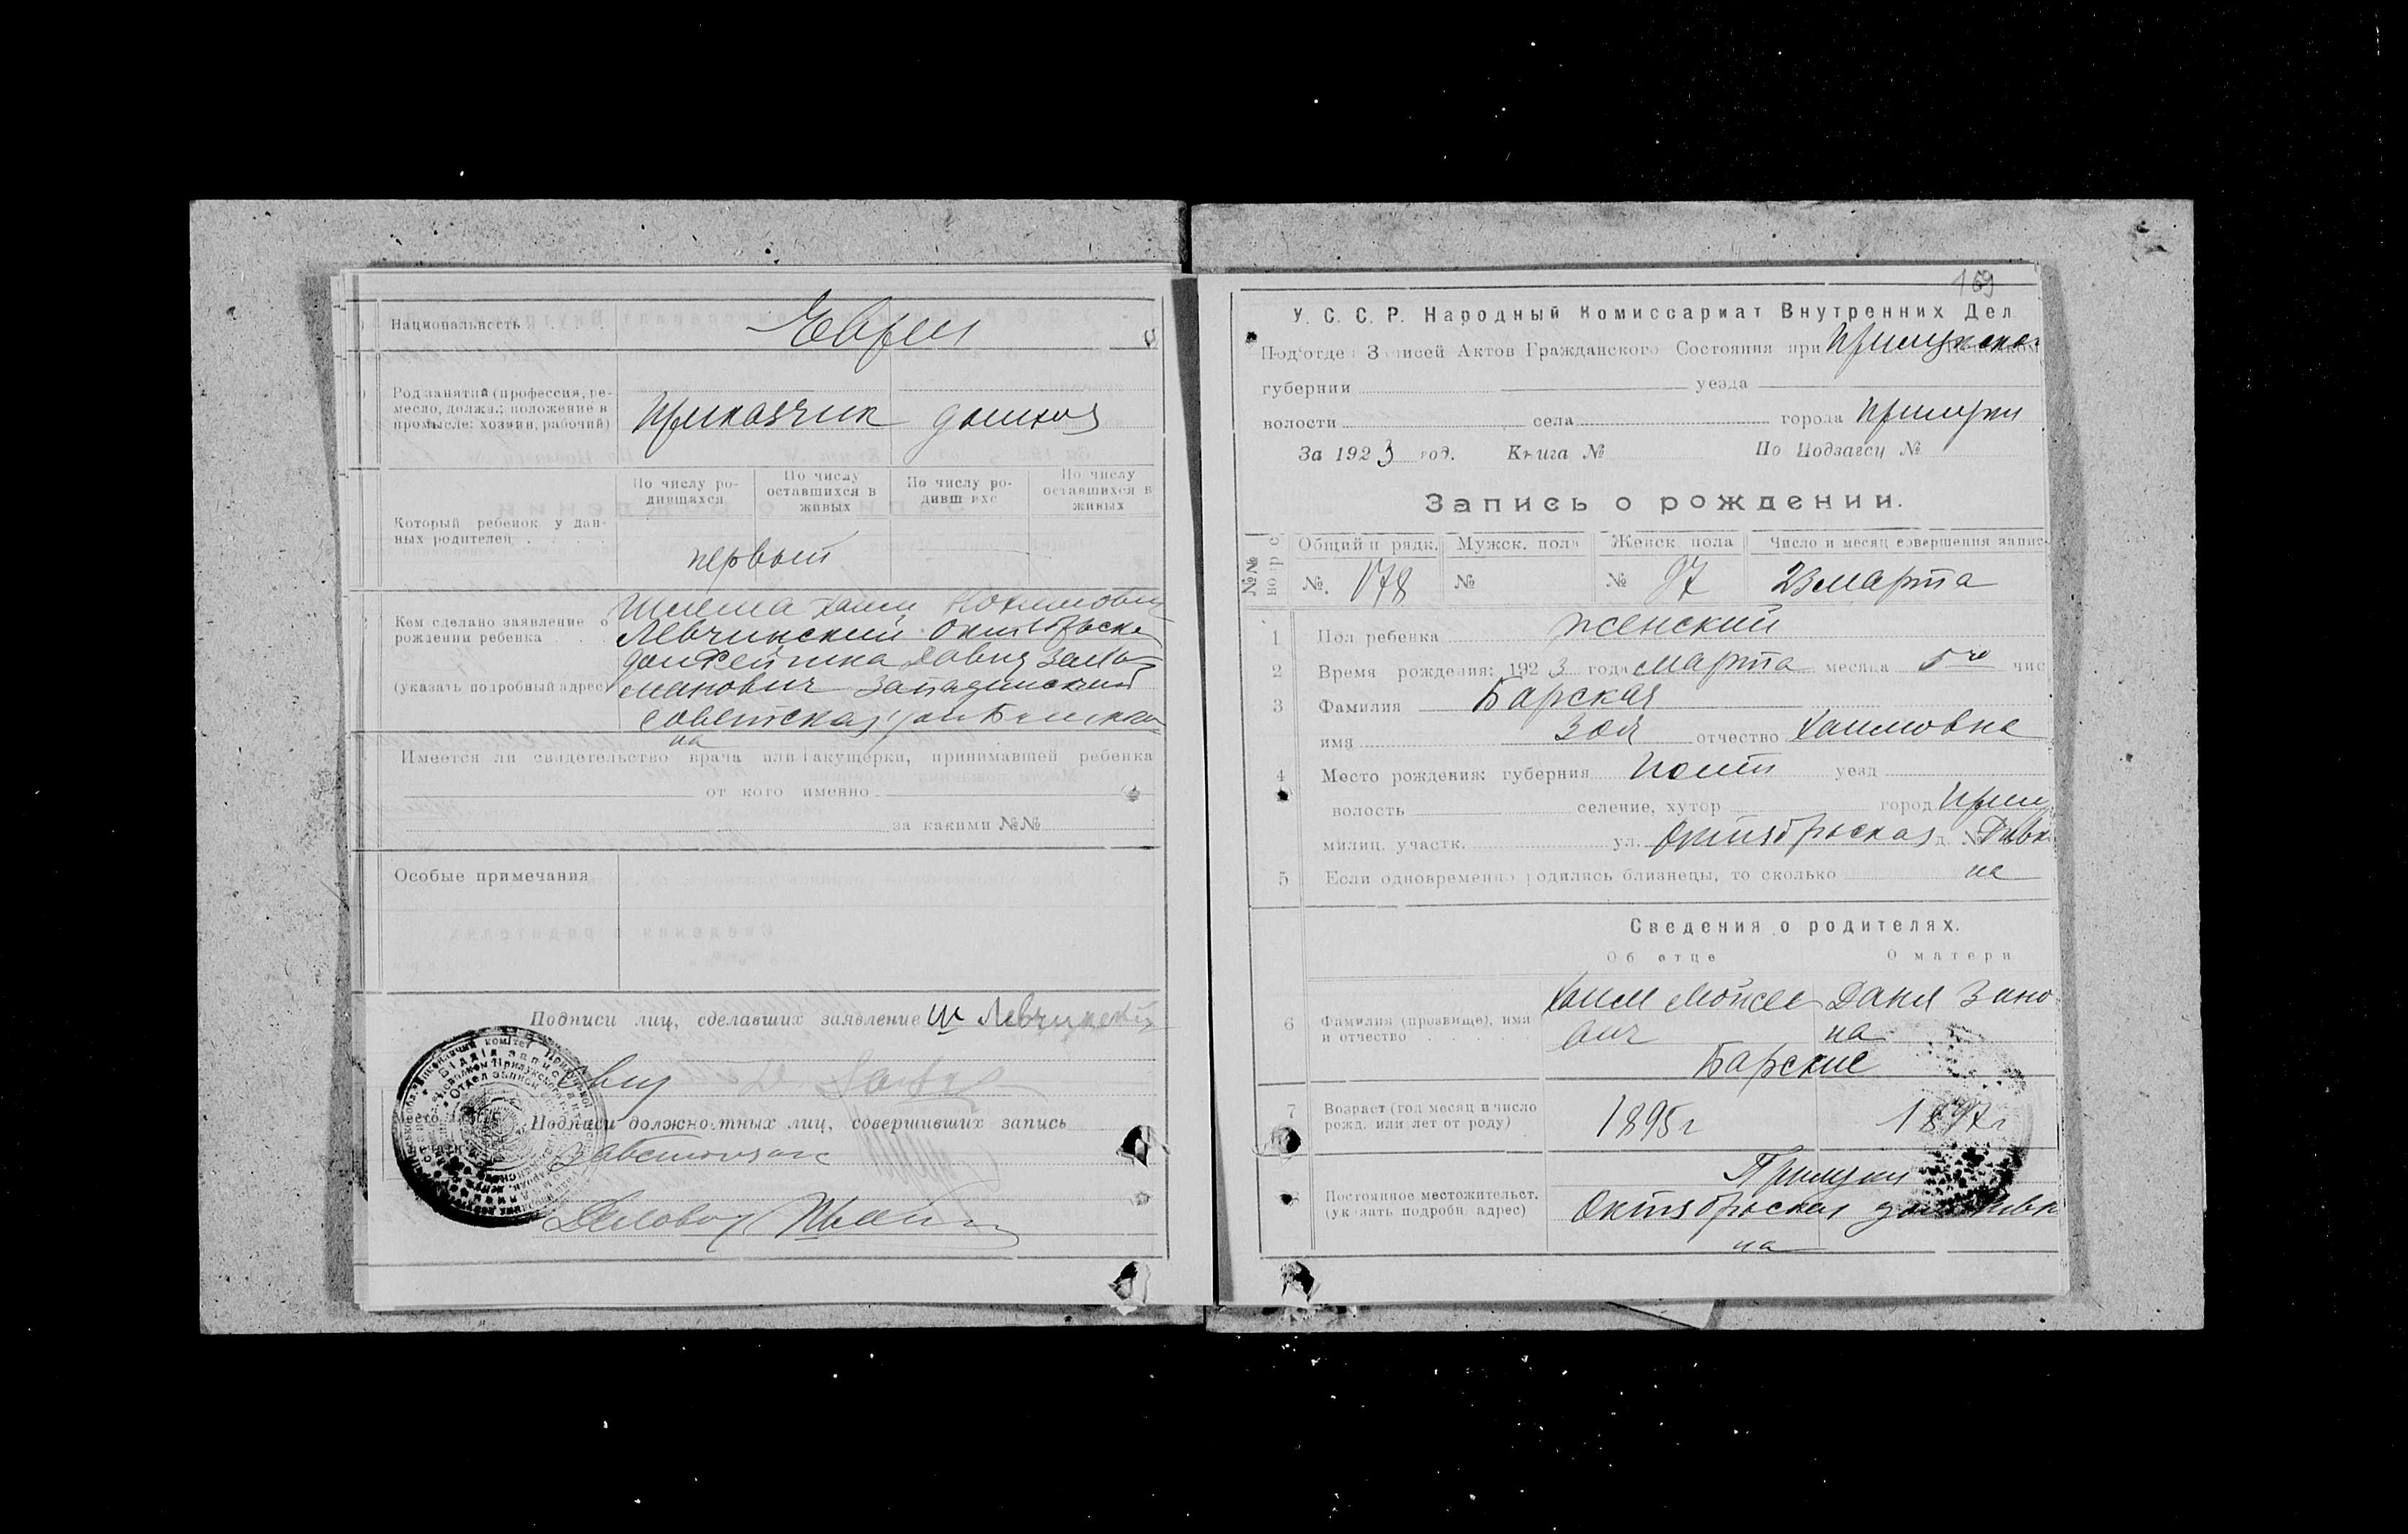 Национальность
Евреи
Род занятий (профессия, ре-
месло, должн.: положение в
промысле: хозяин, рабочий)
Приказчик домхоз
По числу ро-
дившихся
По числу
оставшихся в
живых
По числу ро-
дивш ихс
По числу
оставшихся в
живых
Который ребенок у дан-
ных родителей
первый
Кем сделано заявление о
рождении ребенка
(указать подробный адрес)
Шлема Хаим
Левчинский Октябрьска
Давид Залма
манович Западинский
Советская
на
Имеется ли свидетельство врача или акушерки, принимавшей ребенка
от кого именно
за какими №№
Особые примечания
Подписи лиц, сделавших заявление Ш Левчинский
Подписи должностных лиц, совершивших запись
Завстолзаг
Деловод
169
У. С. С. Р. Народный Комиссариат Внутренних Дел
Под'отдел Записей Актов Гражданского Состояния при Прилукском
губернии уезда
волости села города Прилуки
За 1923 год. Книга № По Подзагсу №
Запись о рождении.
№№
Общий п рядк. Мужск. пола Женск пола Число и месяц совершения запис.
№. 178 № № 97 23 марта
1 Пол ребенка женский
2 Время рождения: 1923 года марта месяца 5го чис
3 Фамилия Барская
имя Зоя отчество Хаимовна
4 Место рождения: губерния Полт уезд
волость селение, хутор город Прилу
милиц. участк. ул. Октябрьская д. № Ривк
на
5 Если одновременно родились близнецы, то сколько
Сведения о родителях.
Об отце О матери
6 Фамилия (прозвище), имя
и отчество
Хаим Мойсее Даня Зино
вич на
Барские
7 Возраст (год месяц и число
рожд. или лет от роду)
1895г 1897г
Постоянное местожительст.
(указать подробн. адрес)
Прилуки
Октябрьская дом Ривк
на